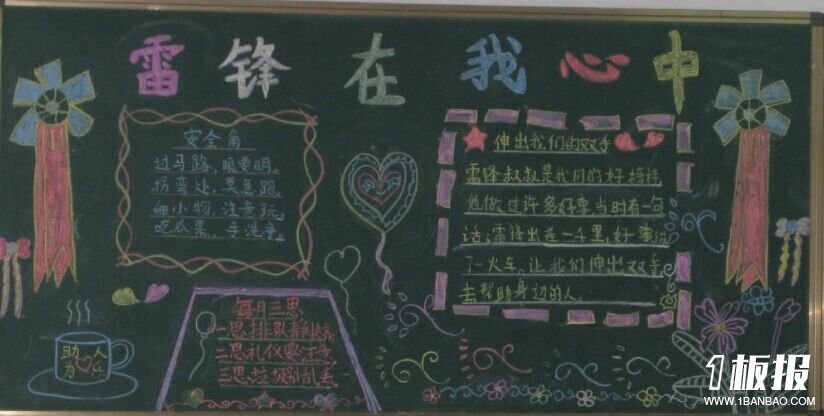 雷锋在我心中
安全角
过马路,眼要明。
拐弯处,莫急跑。
细小物,注意玩。
吃瓜果,手洗净。
伸出我们的双手
雷锋叔叔是我们的好榜样
他做过许多好事当时有一句
话:雷锋出差一千里,好事做
了一火车。让我们伸出双手
去帮助身边的人。
每月三思
一思排队
二思礼仪要注意
三思垃圾别乱丢
助人
为乐
1板报
WWW.1BANBAO.COM